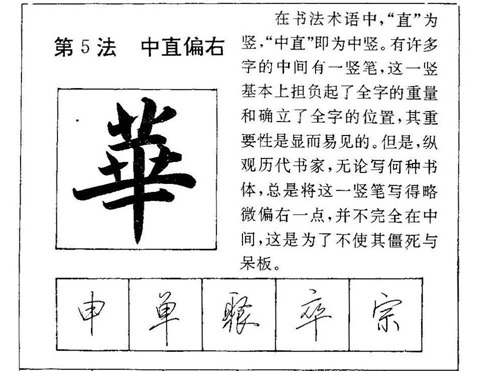 第5法 中直偏右
華
在书法术语中，“直”为
竖，“中直”即为中竖。有许多
字的中间有一竖笔，这一竖
基本上担负起了全字的重量
和确立了全字的位置，其重
要性是显而易见的。但是，纵
观历代书家，无论写何种书
体，总是将这一竖笔写得略
微偏右一点，并不完全在中
间，这是为了不使其僵死与
呆板。
申 单 卒 宗